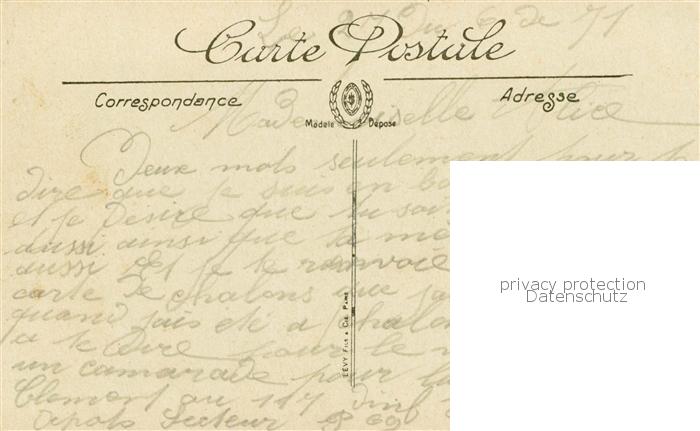 Le 27 Du 6 de 71
Carte Postale
Correspondance
Adresse
Mademoiselle
Modèle Déposé
Deux mots seulement pour
dire que je suis en bo
et je Désire que tu soi
aussi ainsi que ta mè
aussi Et je te renvoie
carte De chalons que
quand jais été a chalon
a te Dire pour le
un camarade pour
Clement au 117 Dinf
Depots Secteur 69
LÉVY FILS & Cie PARIS
privacy protection
Datenschutz